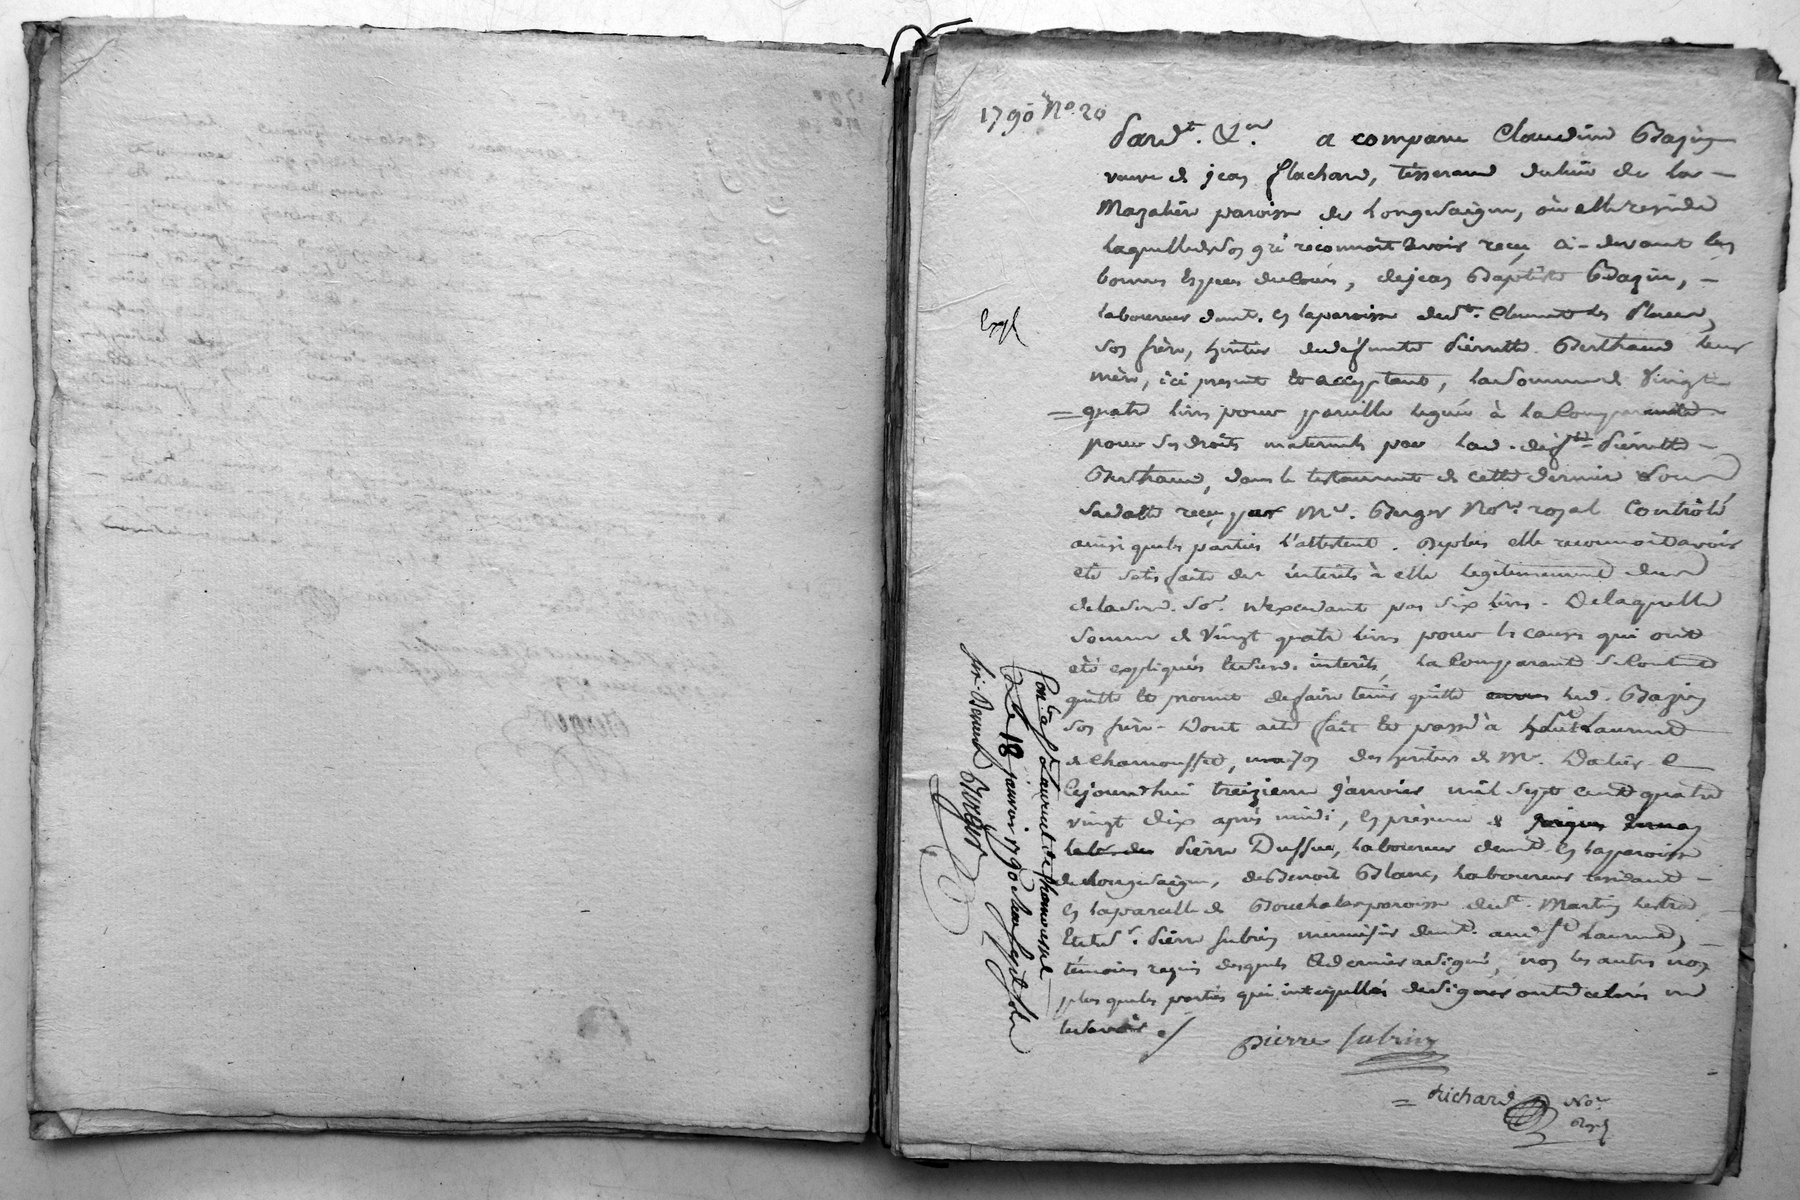 1790 No. 20
Pard.t &. a comparu Claudine Bazin
veuve de jean flachard, tisserand du lieu de la
Mazalier paroisse de Longesaigne, où elle reside
laquelle de son gré reconnoit avoir reçu ci-devant en
bonnes especes du Cours, de jean Baptiste Bazin,
laboureur dem.t en la paroisse de St. Clement les places,
son frère, heritier de défunte Pierrette Berthaud leur
mère, ici present et acceptant, la somme de vingt
quatre livres pour pareille leguée à la Comparante
pour ses droits maternels par lad. def.te Pierrette
Berthaud, dans le testament de cette derniere sous
sa datte reçu par Me. Berger No.re royal Controlé
ainsi que les parties l'attestent. De plus elle reconnoit avoir
eté satisfaite des interets à elle legitimement dus
de lad. so. n'excedant pas six livres. De laquelle
somme de vingt quatre livres pour les causes qui ont
eté expliquées et desd. interets, la Comparante se Contente
quitte et promet de faire tenir quitte led. Bazin
son frère. Dont acte fait et passé à St Laurent
de Chamousset, maison des heritiers de Mr. Dalier
Cejourd'hui treizieme janvier mil sept cent quatre
vingt dix après midi, en presence de
Pierre Dussuc, laboureur dem.t en la paroisse
de Longesaigne, de Benoit Blanc, laboureur residant
en la parcelle de Bouchalas paroisse de St. Martin Lestra
Et de Sr. Pierre Subrin menuisier dem.t aud. St Laurent,
témoins requis desquels led dernier a signé, non les autres non
plus que les parties qui interpellés de signer ont declaré ne
le savoir ./
pierre subrin
Richard No.re
Royal
Expl
Con.lé a St Laurent de chamousset
Le 18 janvier 1790 Reçu sept sols
six deniers Berger